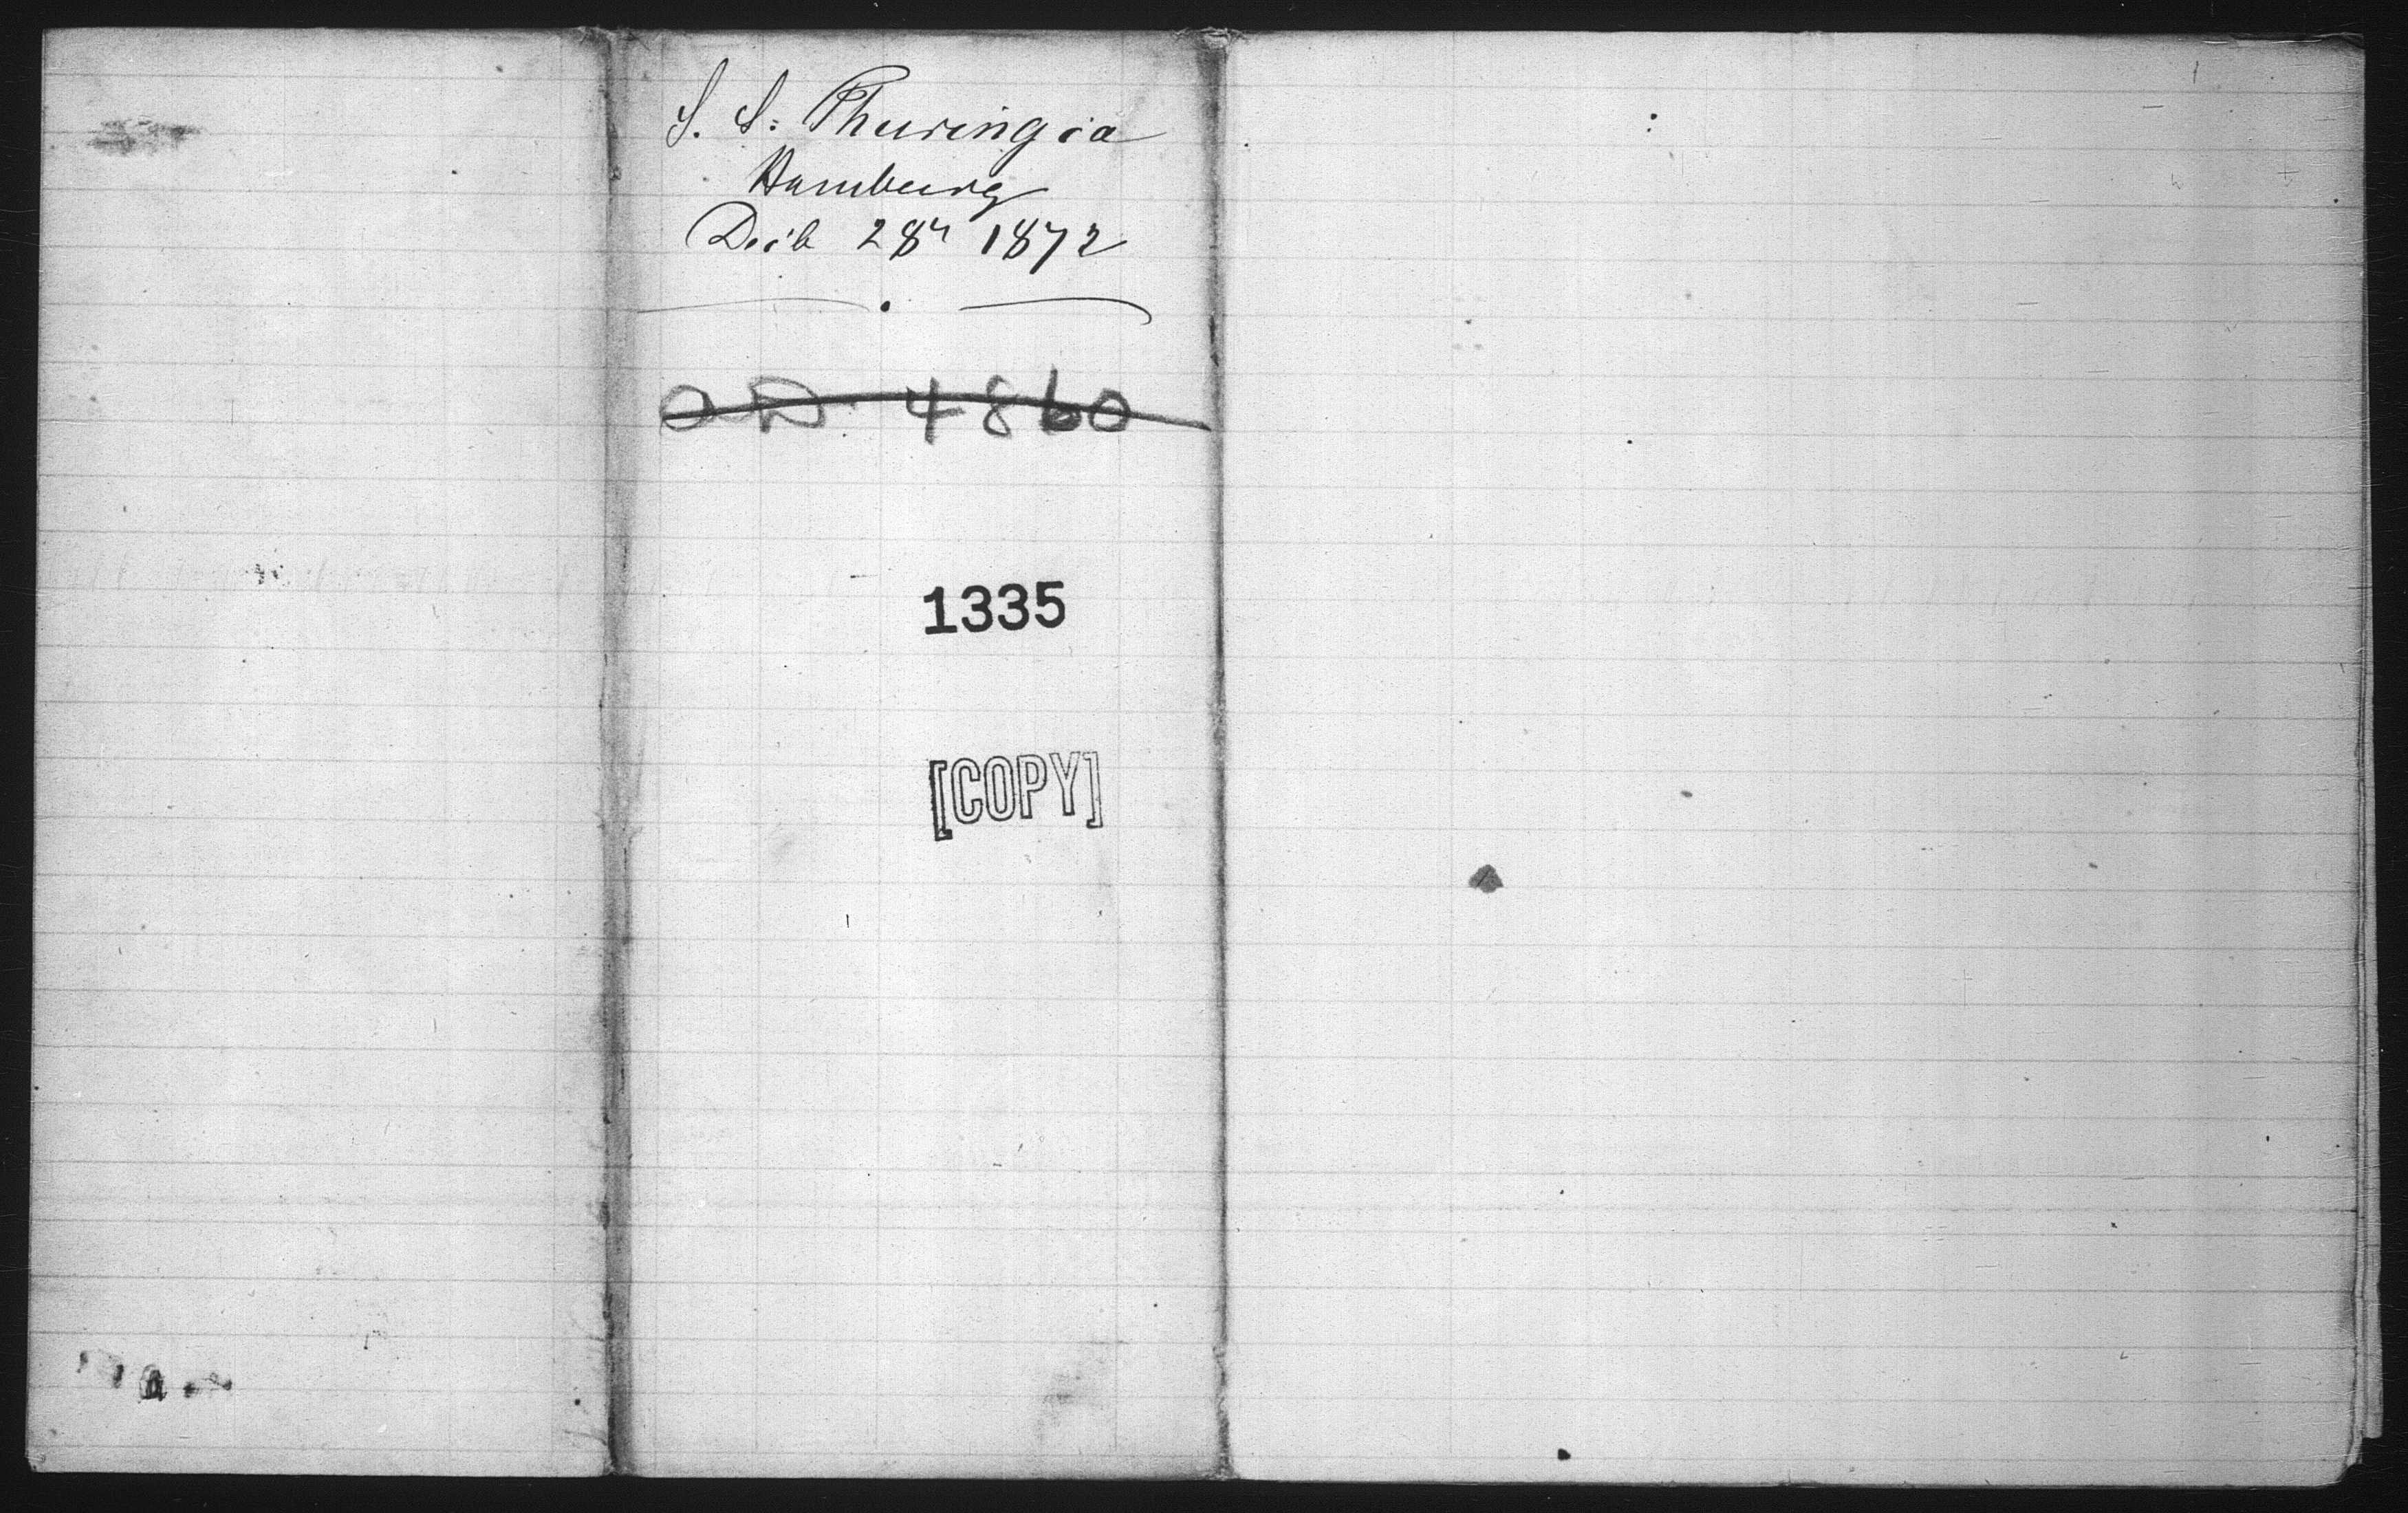 S. S. Thuringia
Hamburg
Decb 28th 1872
4860
1335
[COPY]